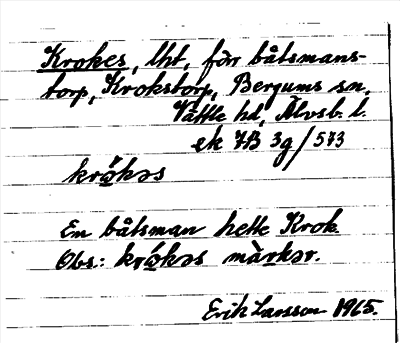 Krokes, lht, förr båtsmans-
torp, Krokstorp, Bergums sn,
Vättle hd, Älvsb. l.
ek 7B 3g/573
krǻkəs
En båtsman hette Krok.
Obs.: krǻkəs màrkər.
Erik Larsson 1965.